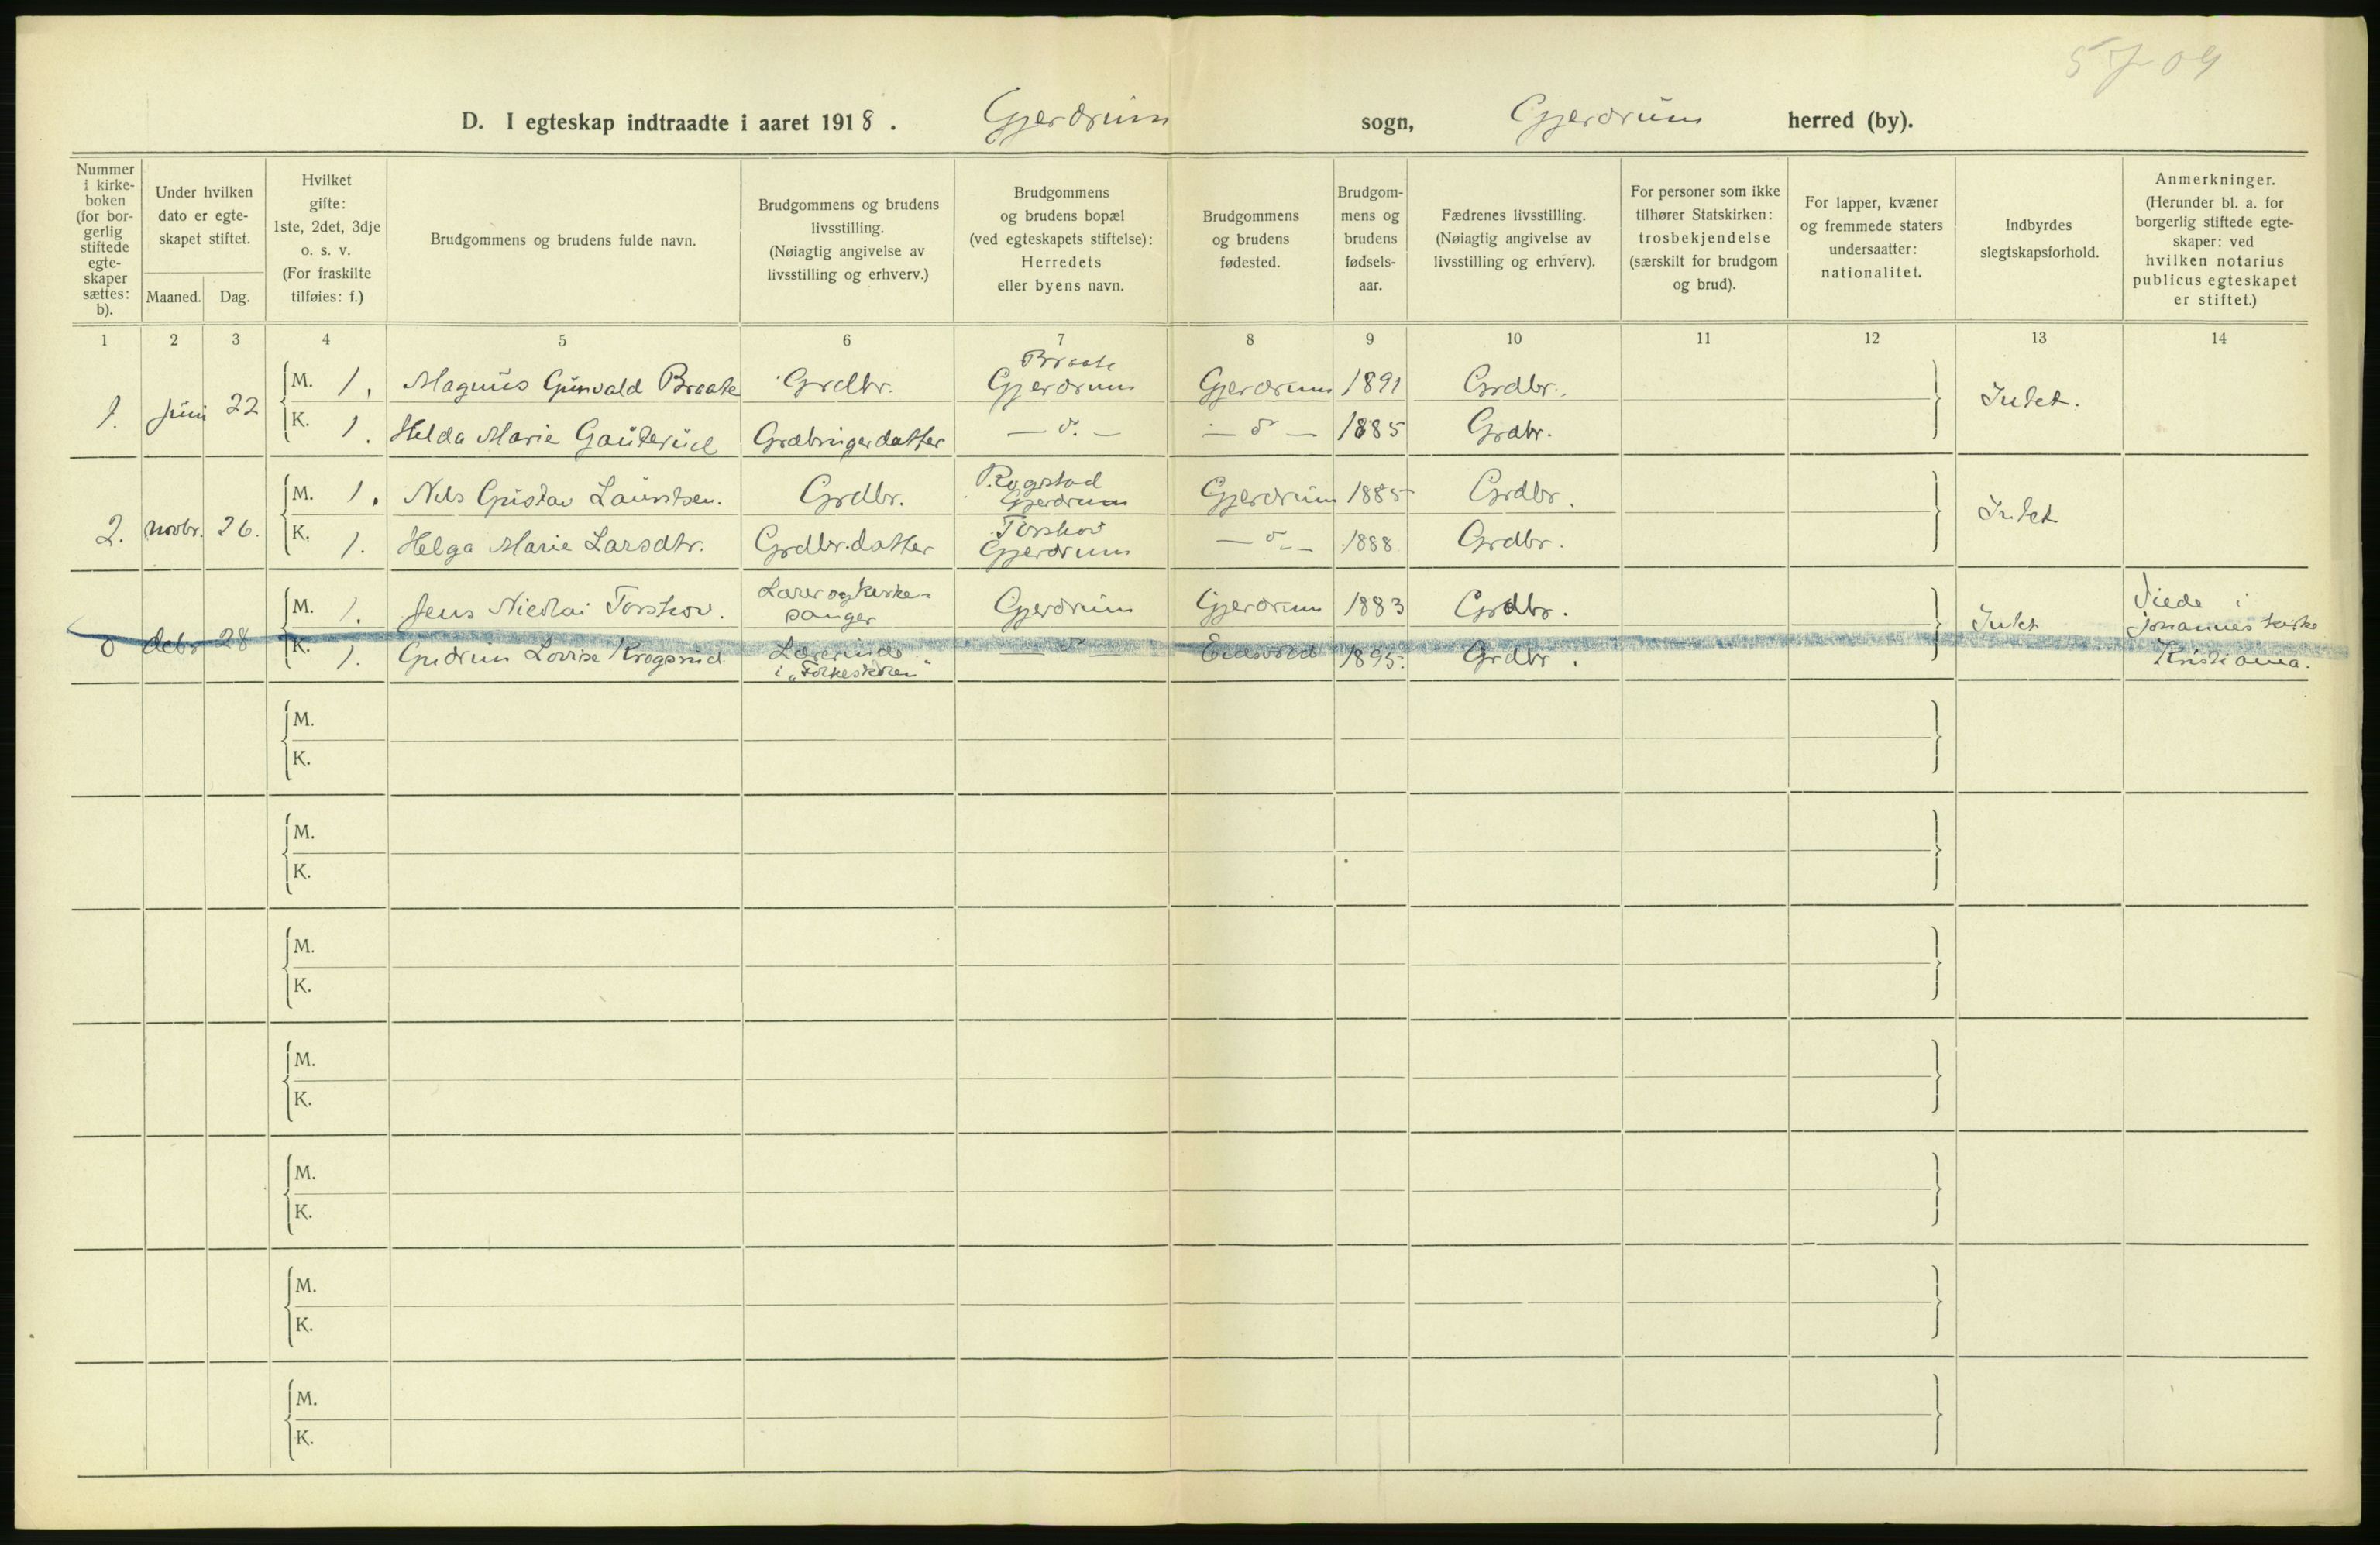 5709
D. I egteskap indtraadte i aaret 1918. Gjerdrum sogn, Gjerdrum herred (by).
Nummer i kirke-boken (for bor-gerlig stiftede egte-skaper sættes: b).
Under hvilken dato er egte-skapet stiftet.
Maaned. Dag.
Hvilket gifte: 1ste, 2det, 3dje o. s. v. (For fraskilte tilføies: f.)
Brudgommens og brudens fulde navn.
Brudgommens og brudens livsstilling. (Nøiagtig angivelse av livsstilling og erhverv.)
Brudgommens og brudens bopæl (ved egteskapets stiftelse): Herredets eller byens navn.
Brudgommens og brudens fødested.
Brudgom-mens og brudens fødsels-aar.
Fædrenes livsstilling. (Nøiagtig angivelse av livsstilling og erhverv).
For personer som ikke tilhører Statskirken: trosbekjendelse (særskilt for brudgom og brud).
For lapper, kvæner og fremmede staters undersaatter: nationalitet.
Indbyrdes slegtskapsforhold.
Anmerkninger. (Herunder bl. a. for borgerlig stiftede egte-skaper: ved hvilken notarius publicus egteskapet er stiftet.)
1 2 3 4 5 6 7 8 9 10 11 12 13 14
1. Juni 22 M. 1. Magnus Gunvald Braate Grdbr. Braate Gjerdrum Gjerdrum 1891 Grdbr. Intet.
K. 1. Helda Marie Gauterud Grdbrugerdatter — d. — — d — 1885 Grdbr.
2. Novbr. 26. M. 1. Nils Gustav Lauritsen. Grdbr. Rogstad Gjerdrum Gjerdrum 1885 Grdbr. Intet
K. 1. Helga Marie Larsdtr. Grdbr.datter Torshov Gjerdrum — d — 1888 Grdbr.
3 Debr 28 M. 1. Jens Nicolai Torshov. Lærer og kirke-sanger Gjerdrum Gjerdrum 1883 Grdbr. Intet Viede i Johannes kirke
K. 1. Gudrun Lovise Krogsrud Lærerinde i "Folkeskolen" — d — Eidsvold 1895. Grdbr. Kristiania.
M.
K.
M.
K.
M.
K.
M.
K.
M.
K.
M.
K.
M.
K.